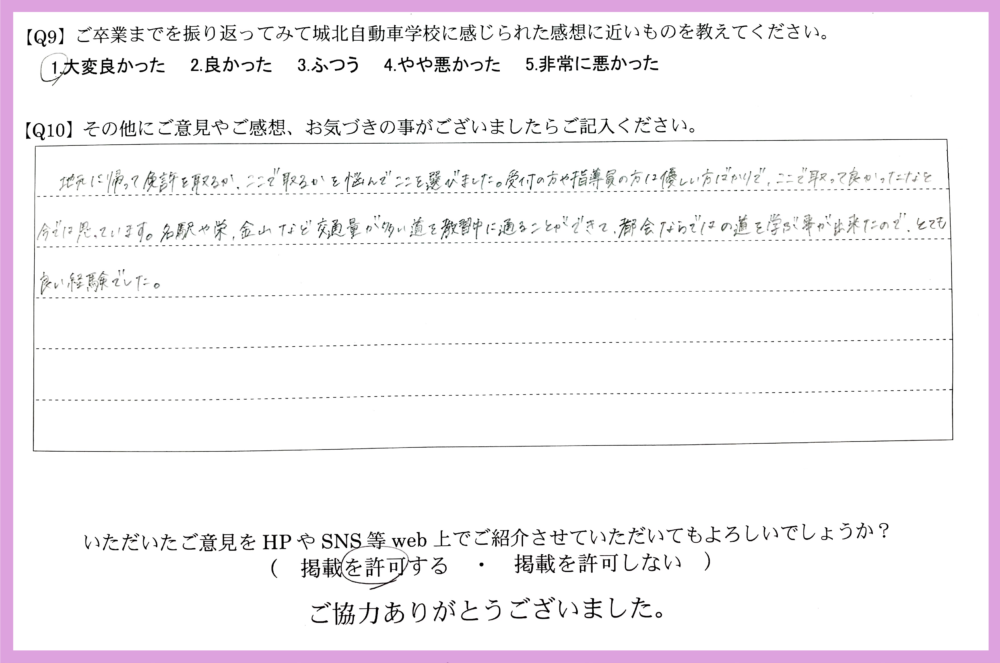 【Q9】ご卒業までを振り返ってみて城北自動車学校に感じられた感想に近いものを教えてください。
1.大変良かった 2.良かった 3.ふつう 4.やや悪かった 5.非常に悪かった
【Q10】その他にご意見やご感想、お気づきの事がございましたらご記入ください。
地元に帰って免許を取るか、ここで取るかを悩んでここを選びました。受付の方や指導員の方は優しい方ばかりで、ここで取って良かったなと
今では思っています。名駅や栄、金山など交通量が多い道を教習中に通ることができて、都会ならではの道を学ぶ事が出来たので、とても
良い経験でした。
いただいたご意見をHPやSNS等web上でご紹介させていただいてもよろしいでしょうか？
（ 掲載を許可する ・ 掲載を許可しない ）
ご協力ありがとうございました。